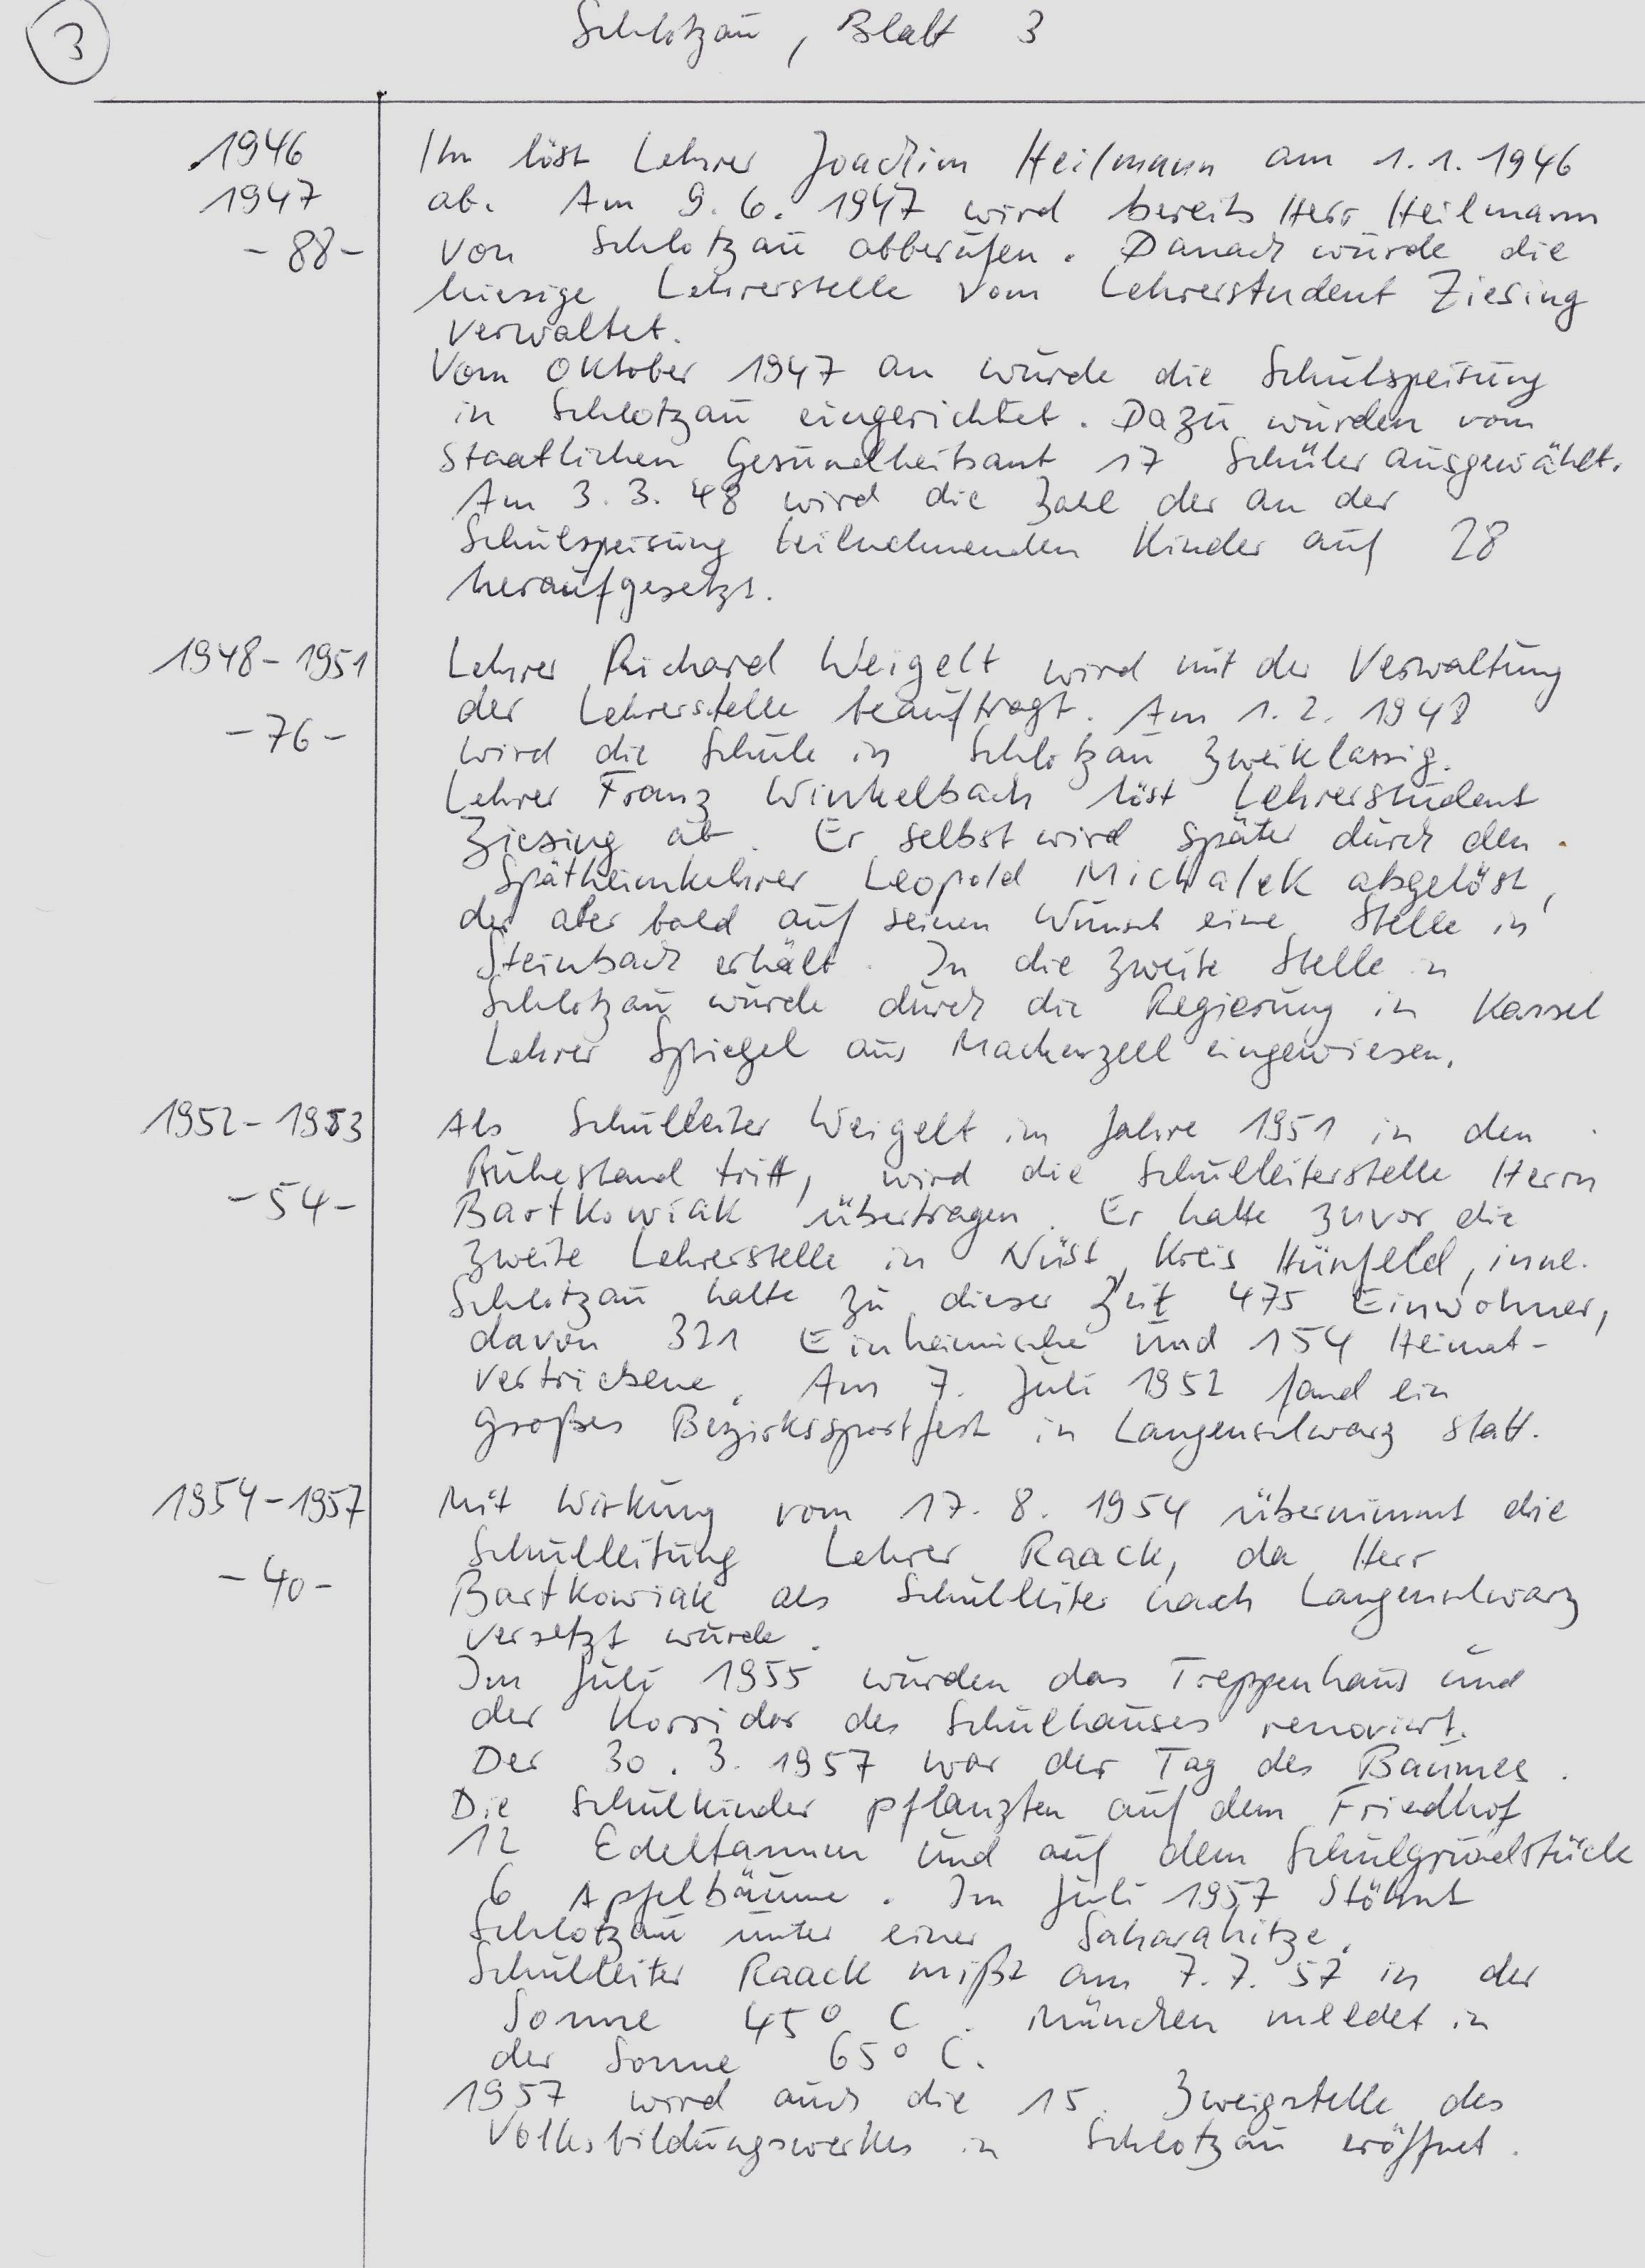 3
Schlotzau, Blatt 3
1946
1947
- 88 -
Ihn löst Lehrer Joachim Heilmann am 1.1.1946
ab. Am 9.6.1947 wird bereits Herr Heilmann
von Schlotzau abberufen. Danach wurde die
hiesige Lehrerstelle vom Lehrerstudent Ziesing
verwaltet.
Vom Oktober 1947 an wurde die Schulspeisung
in Schlotzau eingerichtet. Dazu wurden vom
staatlichen Gesundheitsamt 17 Schüler ausgewählt.
Am 3.3.48 wird die Zahl der an der
Schulspeisung teilnehmenden Kinder auf 28
heraufgesetzt.
1948 - 1951
- 76 -
Lehrer Richard Weigelt wird mit der Verwaltung
der Lehrerstelle beauftragt. Am 1.2.1948
wird die Schule in Schlotzau zweiklassig.
Lehrer Franz Winkelbach löst Lehrerstudent
Ziesing ab. Er selbst wird später durch den
Spätheimkehrer Leopold Michalek abgelöst,
der aber bald auf seinen Wunsch eine Stelle in
Steinbach erhält. In die zweite Stelle in
Schlotzau wurde durch die Regierung in Kassel
Lehrer Spiegel aus Mackenzell eingewiesen.
1952 - 1953
- 54 -
Als Schulleiter Weigelt im Jahre 1951 in den
Ruhestand tritt, wird die Schulleiterstelle Herrn
Bartkowiak übertragen. Er hatte zuvor die
zweite Lehrerstelle in Nüst, Kreis Hünfeld, inne.
Schlotzau hatte zu dieser Zeit 475 Einwohner,
davon 321 Einheimische und 154 Heimat-
vertriebene. Am 7. Juli 1952 fand ein
großes Bezirkssportfest in Langenschwarz statt.
1954 - 1957
- 40 -
Mit Wirkung vom 17.8.1954 übernimmt die
Schulleitung Lehrer Raack, da Herr
Bartkowiak als Schulleiter nach Langenschwarz
versetzt wurde.
Im Juli 1955 wurden das Treppenhaus und
der Korridor des Schulhauses renoviert.
Der 30.3.1957 war der Tag des Baumes.
Die Schulkinder pflanzten auf dem Friedhof
12 Edeltannen und auf dem Schulgrundstück
6 Apfelbäume. Im Juli 1957 stöhnt
Schlotzau unter einer Saharahitze.
Schulleiter Raack mißt am 7.7.57 in der
Sonne 45° C. München meldet in
der Sonne 65° C.
1957 wird auch die 15. Zweigstelle des
Volksbildungswerkes in Schlotzau eröffnet.